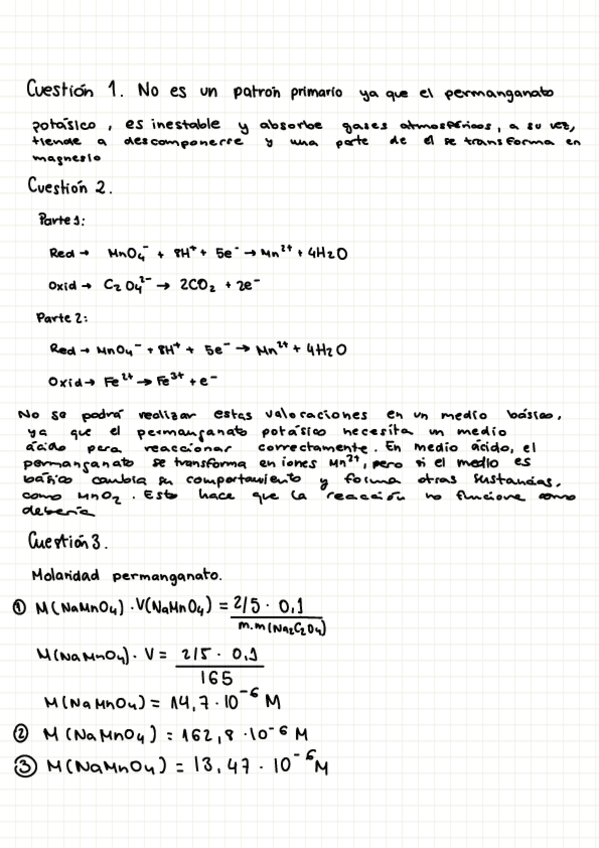 Cuestión 1. No es un patrón primario ya que el permanganato
potásico, es inestable y absorbe gases atmosféricos, a su vez,
tiende a descomponerse y una parte de el se transforma en
magnesio
Cuestión 2.
Parte 1:
Red → MnO₄⁻ + 8H⁺ + 5e⁻ → Mn²⁺ + 4H₂O
Oxid → C₂O₄²⁻ → 2CO₂ + 2e⁻
Parte 2:
Red → MnO₄⁻ + 8H⁺ + 5e⁻ → Mn²⁺ + 4H₂O
Oxid → Fe²⁺ → Fe³⁺ + e⁻
No se podrá realizar estas valoraciones en un medio básico,
ya que el permanganato potásico necesita un medio
ácido para reaccionar correctamente. En medio ácido, el
permanganato se transforma en iones Mn²⁺, pero si el medio es
básico cambia su comportamiento y forma otras sustancias,
como MnO₂. Esto hace que la reacción no funcione como
debería
Cuestión 3.
Molaridad permanganato.
① M(NaMnO₄) · V(NaMnO₄) = 2/5 · 0,1
m.m(Na₂C₂O₄)
M(NaMnO₄) · V = 2/5 · 0,1
165
M(NaMnO₄) = 14,7 · 10⁻⁶ M
② M(NaMnO₄) = 162,8 · 10⁻⁶ M
③ M(NaMnO₄) = 13,47 · 10⁻⁶ M